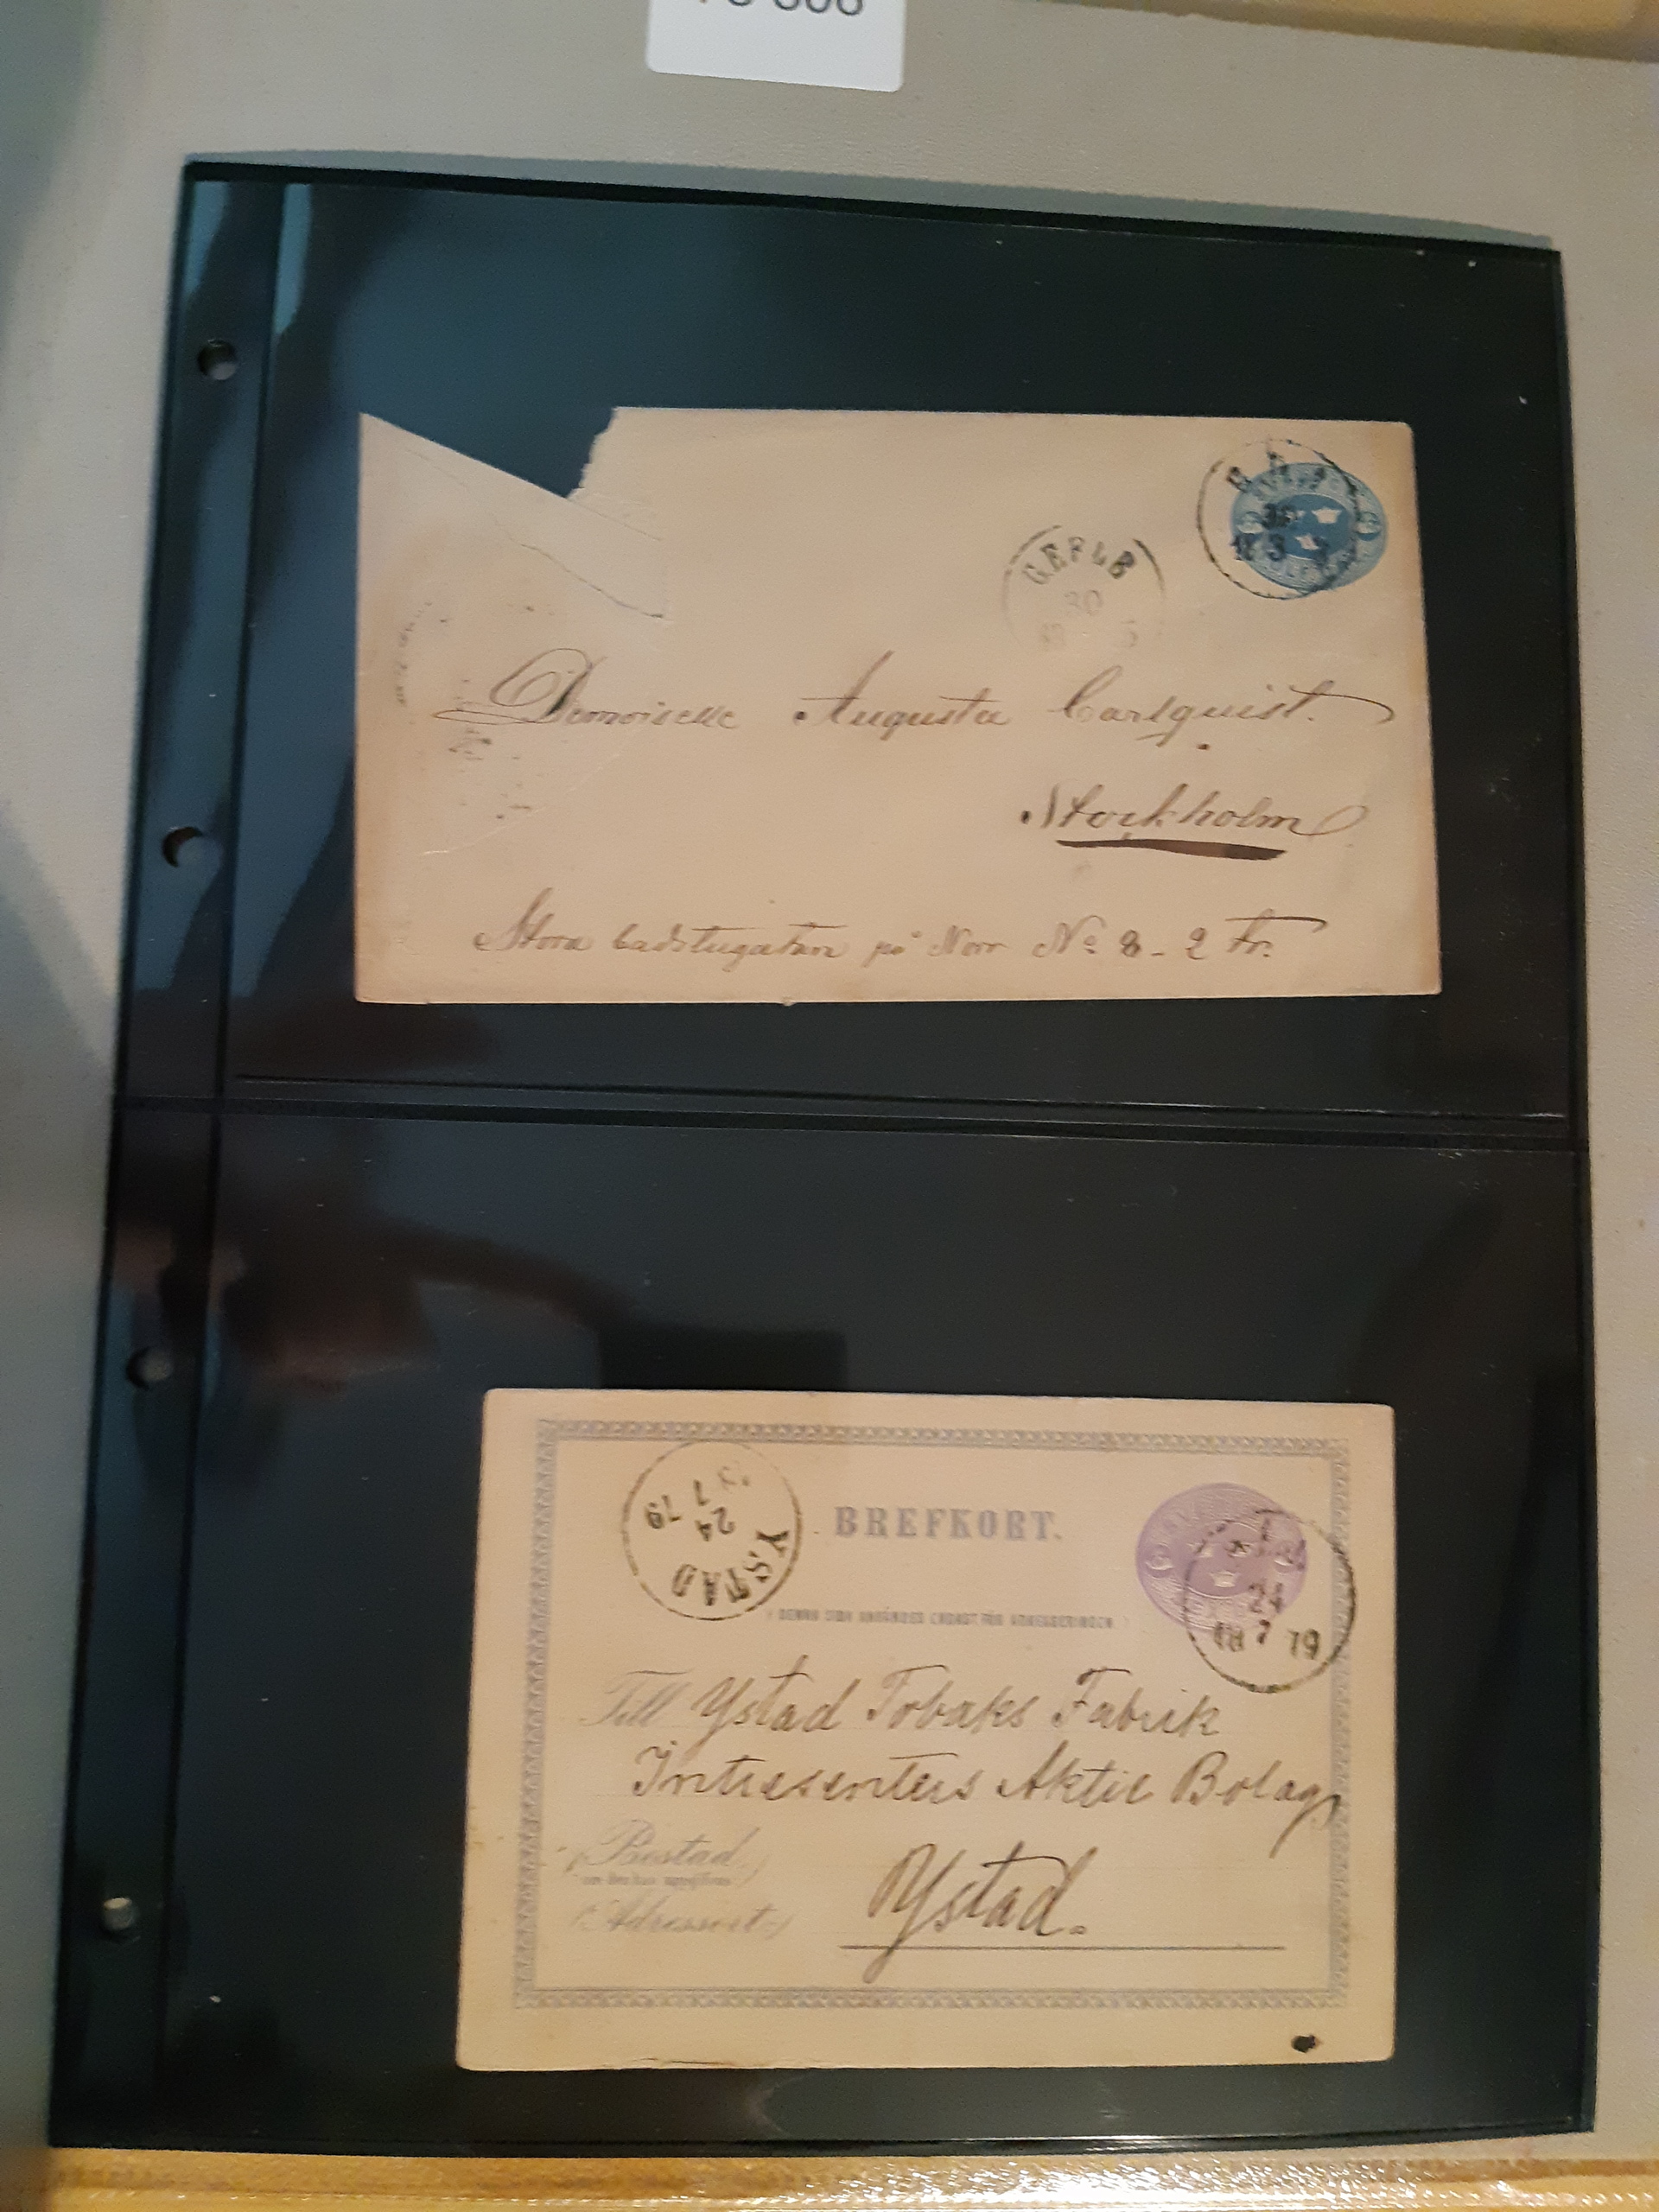 GEFLE
20
Demoiselle Augusta Carlquist.
Stockholm
Stora badstugatan på Norr No 8 - 2 tr.
BREFKORT.
YSTAD
24
7
79
(DENNA SIDA ANVÄNDES ENDAST FÖR ADRESSERINGEN.)
24
18 7 79
Till Ystad Tobaks Fabrik
Intressenters Aktie Bolag
(Bostad)
(Adressort:)
Ystad.